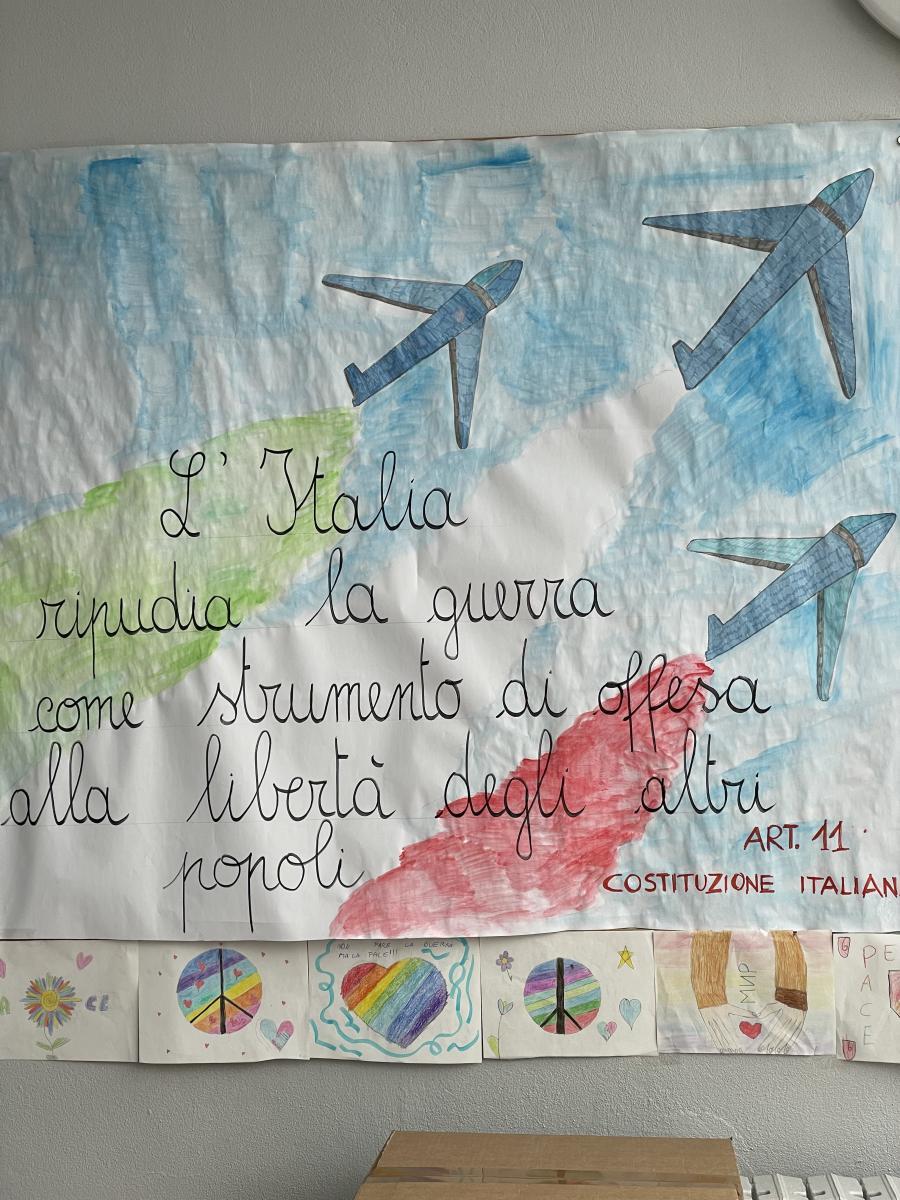 L'Italia
ripudia la guerra
come strumento di offesa
alla libertà degli altri
popoli
ART. 11
COSTITUZIONE ITALIAN
FARE LA GUERRA
MA LA PACE!!!
МИР
PACE
PE